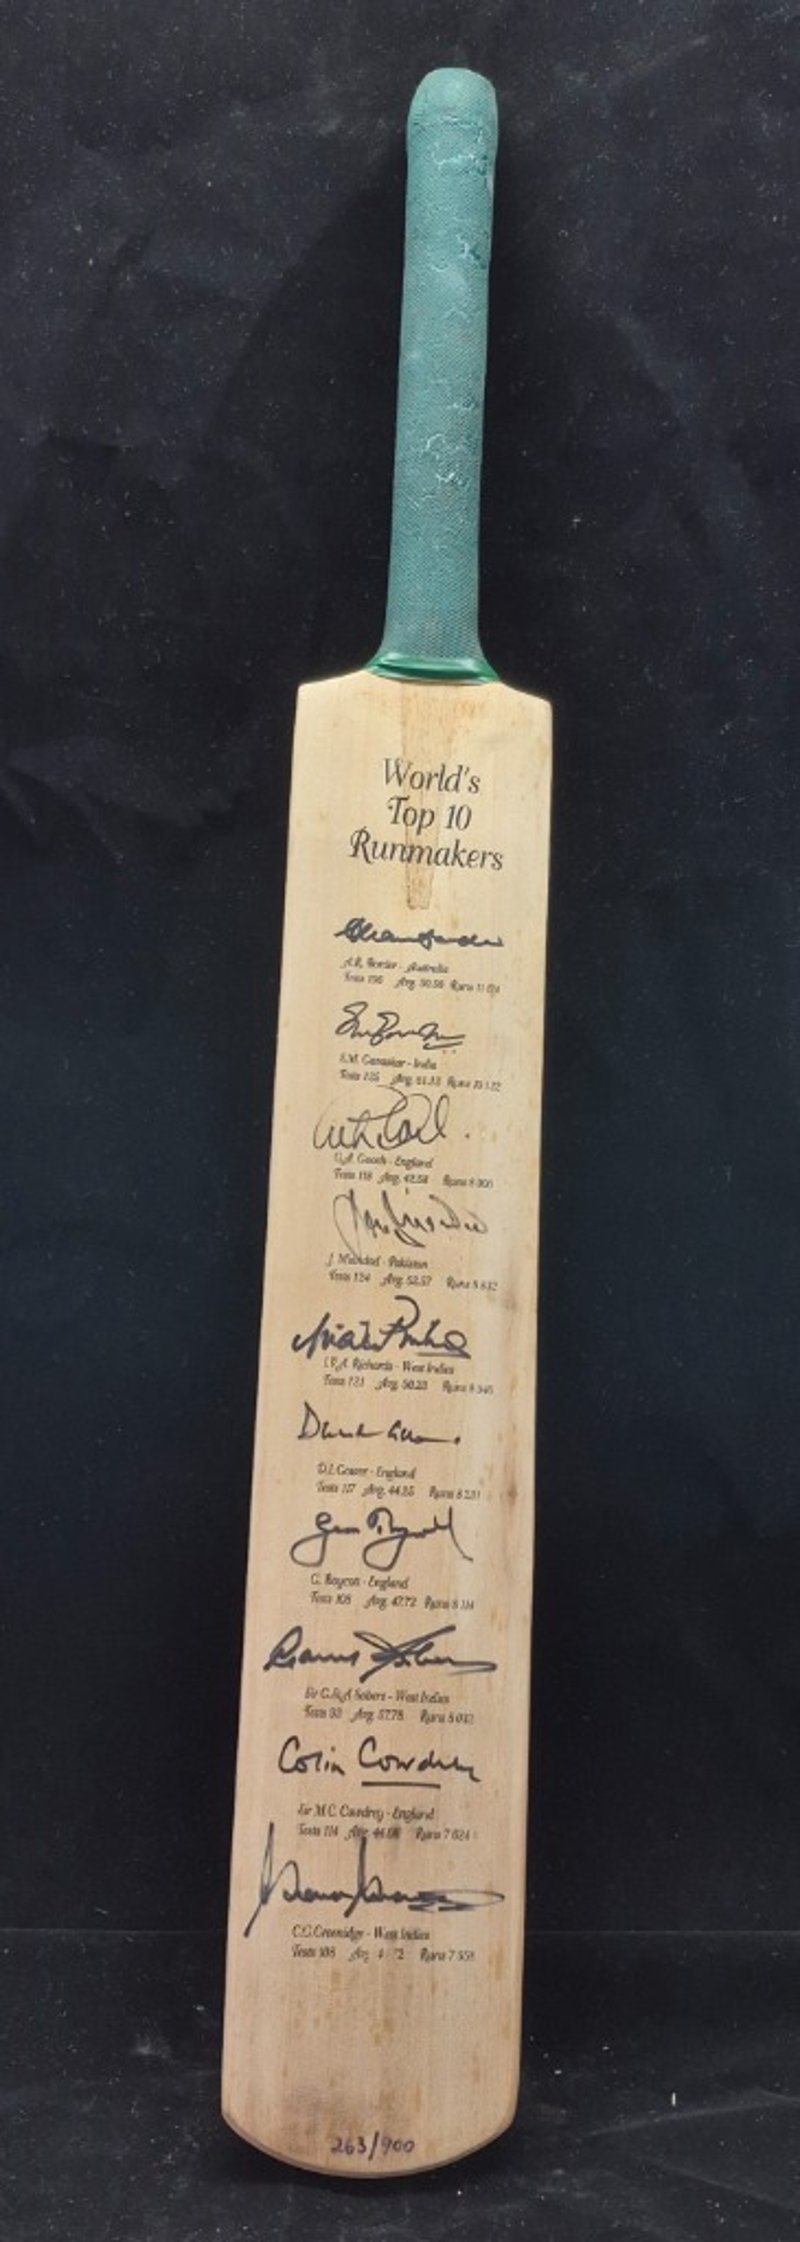 World's
Top 10
Runmakers
A.R. Border - Australia
Tests 156 Avg. 50.56 Runs
S.M. Gavaskar - India
Tests 125 Avg. 51.12 Runs 10 122
G.A. Gooch - England
Tests 118 Avg. 42.58 Runs 8 900
J. Miandad - Pakistan
Tests 124 Avg. 52.57 Runs 8 832
I.V.A. Richards - West Indies
Tests 121 Avg. 50.23 Runs 8 540
D.I. Gower - England
Tests 117 Avg. 44.25 Runs 8 231
G. Boycott - England
Tests 108 Avg. 47.72 Runs 8 114
Sir G.St.A Sobers - West Indies
Tests 93 Avg. 57.78 Runs 8 032
Colin Cowdrey
Sir M.C. Cowdrey - England
Tests 114 Avg. 44.06 Runs 7 624
C.G. Greenidge - West Indies
Tests 108 Avg. Runs 7 558
263/900